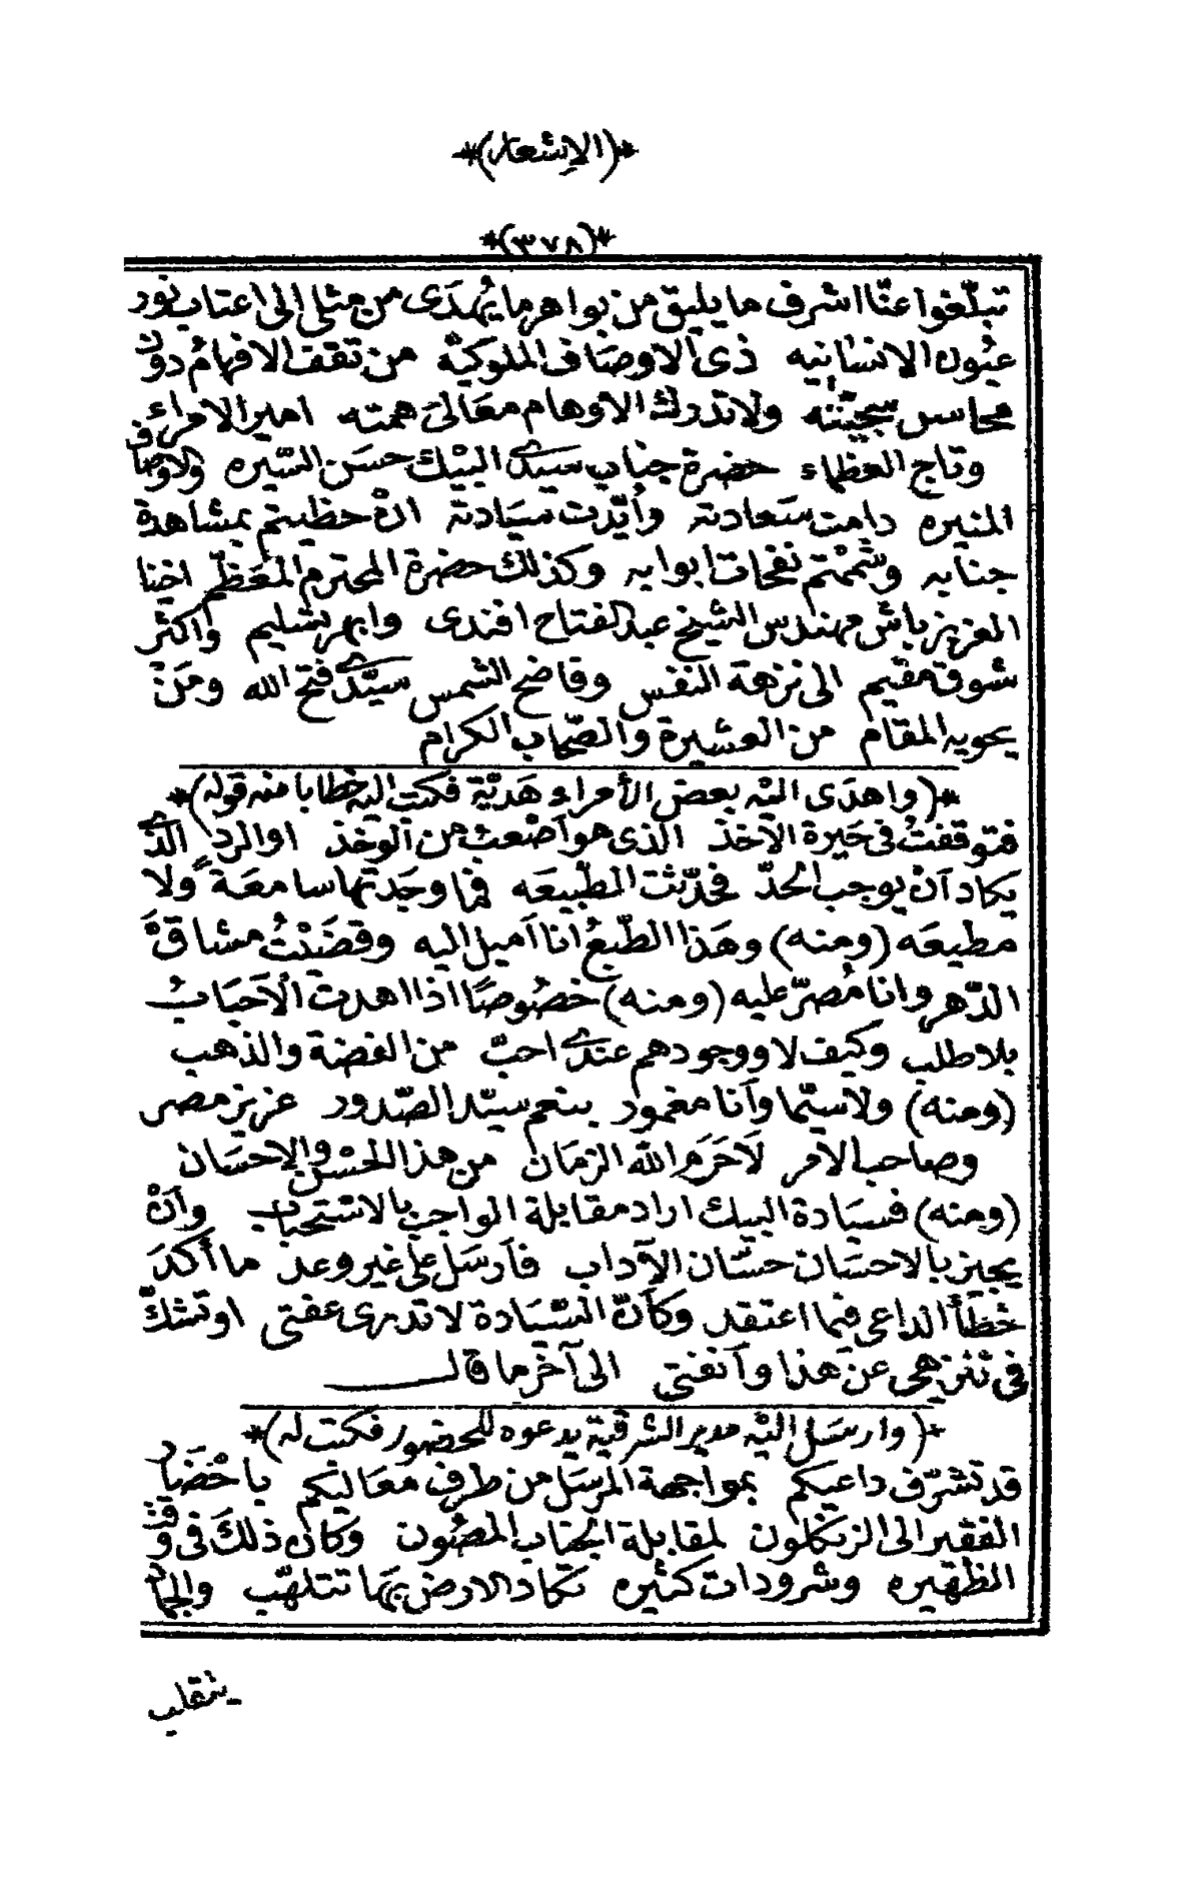 *(الإشعار)*
*(٣٧٨)*
تبلّغوا عنّا اشرف ما يليق من بواهر ما يُهدَى من مثلى الى اعتاب نور
عيُون الانسانيه ذى الاوصاف الملوكيّة من تقف الافهامُ دون
محاسن سجيّته ولا تدرك الاوهام معالىَ همته امير الامراء
وتاج العظماء حضرة جناب سيدى البيْك حسَن السّيره والاوصاف
المنيره دامت سَعادته وأيّدت سيَادته انْ حظيتم بمشاهدة
جنابه وشممْتم نفحات ابوابه وكذلك حضرة المحترم المعَظّم اخينا
العزيز باش مهندس الشيخ عبد الفتاح افندى وابهر تسْليم واكثر
شوق مقيم الى نزهة النفس وفاضح الشمس سيّدى فتح الله ومَنْ
يحويه المقام من العشيرة والصّحاب الكرام
*(واهدَى اليْه بعض الأمراء هَديّة فكتب اليه خطابا منه قوله)*
فتوقفتُ فى حَيرة الآخذ الذى هو اَصْعب من الوخذ او الردّ الذى
يكاد اَنْ يوجب الحدّ فحدّثت الطّبيعَه فما وجَدتها سامعَة ولا
مطيعَه (ومنه) وهَذا الطّبعُ انا اَميل اليه وقضَيْتُ مشاقَّ
الدّهر وانا مُصرّ عليه (ومنه) خصُوصًا اذا اهدت الْاَحبَابُ
بلا طلب وكيف لا ووجودهم عندى احبّ من الفضة والذهب
(ومنه) ولا سيّما واَنا مغمور بنعم سيّد الصّدور عزيز مصر
وصاحب الامر لَاحَرَم الله الزمَان من هذا الحسْن والاحسَان
(ومنه) فسيَادة البيك اراد مقابلة الواجب بالاسْتحباب واَنْ
يجيز بالاحسَان حسَّان الآداب فاَرسَل على غير وعد ما أكدَ
خطأ الداعى فيما اعتقد وكاَنّ السّيَادة لا تدرى عفتى او تشكّ
فى تنْزيهى عن هذا واَنفتى الى آخر ما قال
*(وارسَل اليْه مدير الشرقية يدعوه للحضور فكتب له)*
قد تشرّف داعيكم بمواجهة المرسَل من طرف معَاليكم باحْضَار
الفقير الى الزنكلون لمقابلة الجناب المصُون وكان ذلكَ فى وقت
الظهيره وشرودات كثيره تكاد الارض بهَا تتلهّب والجمَاد
ينقلب